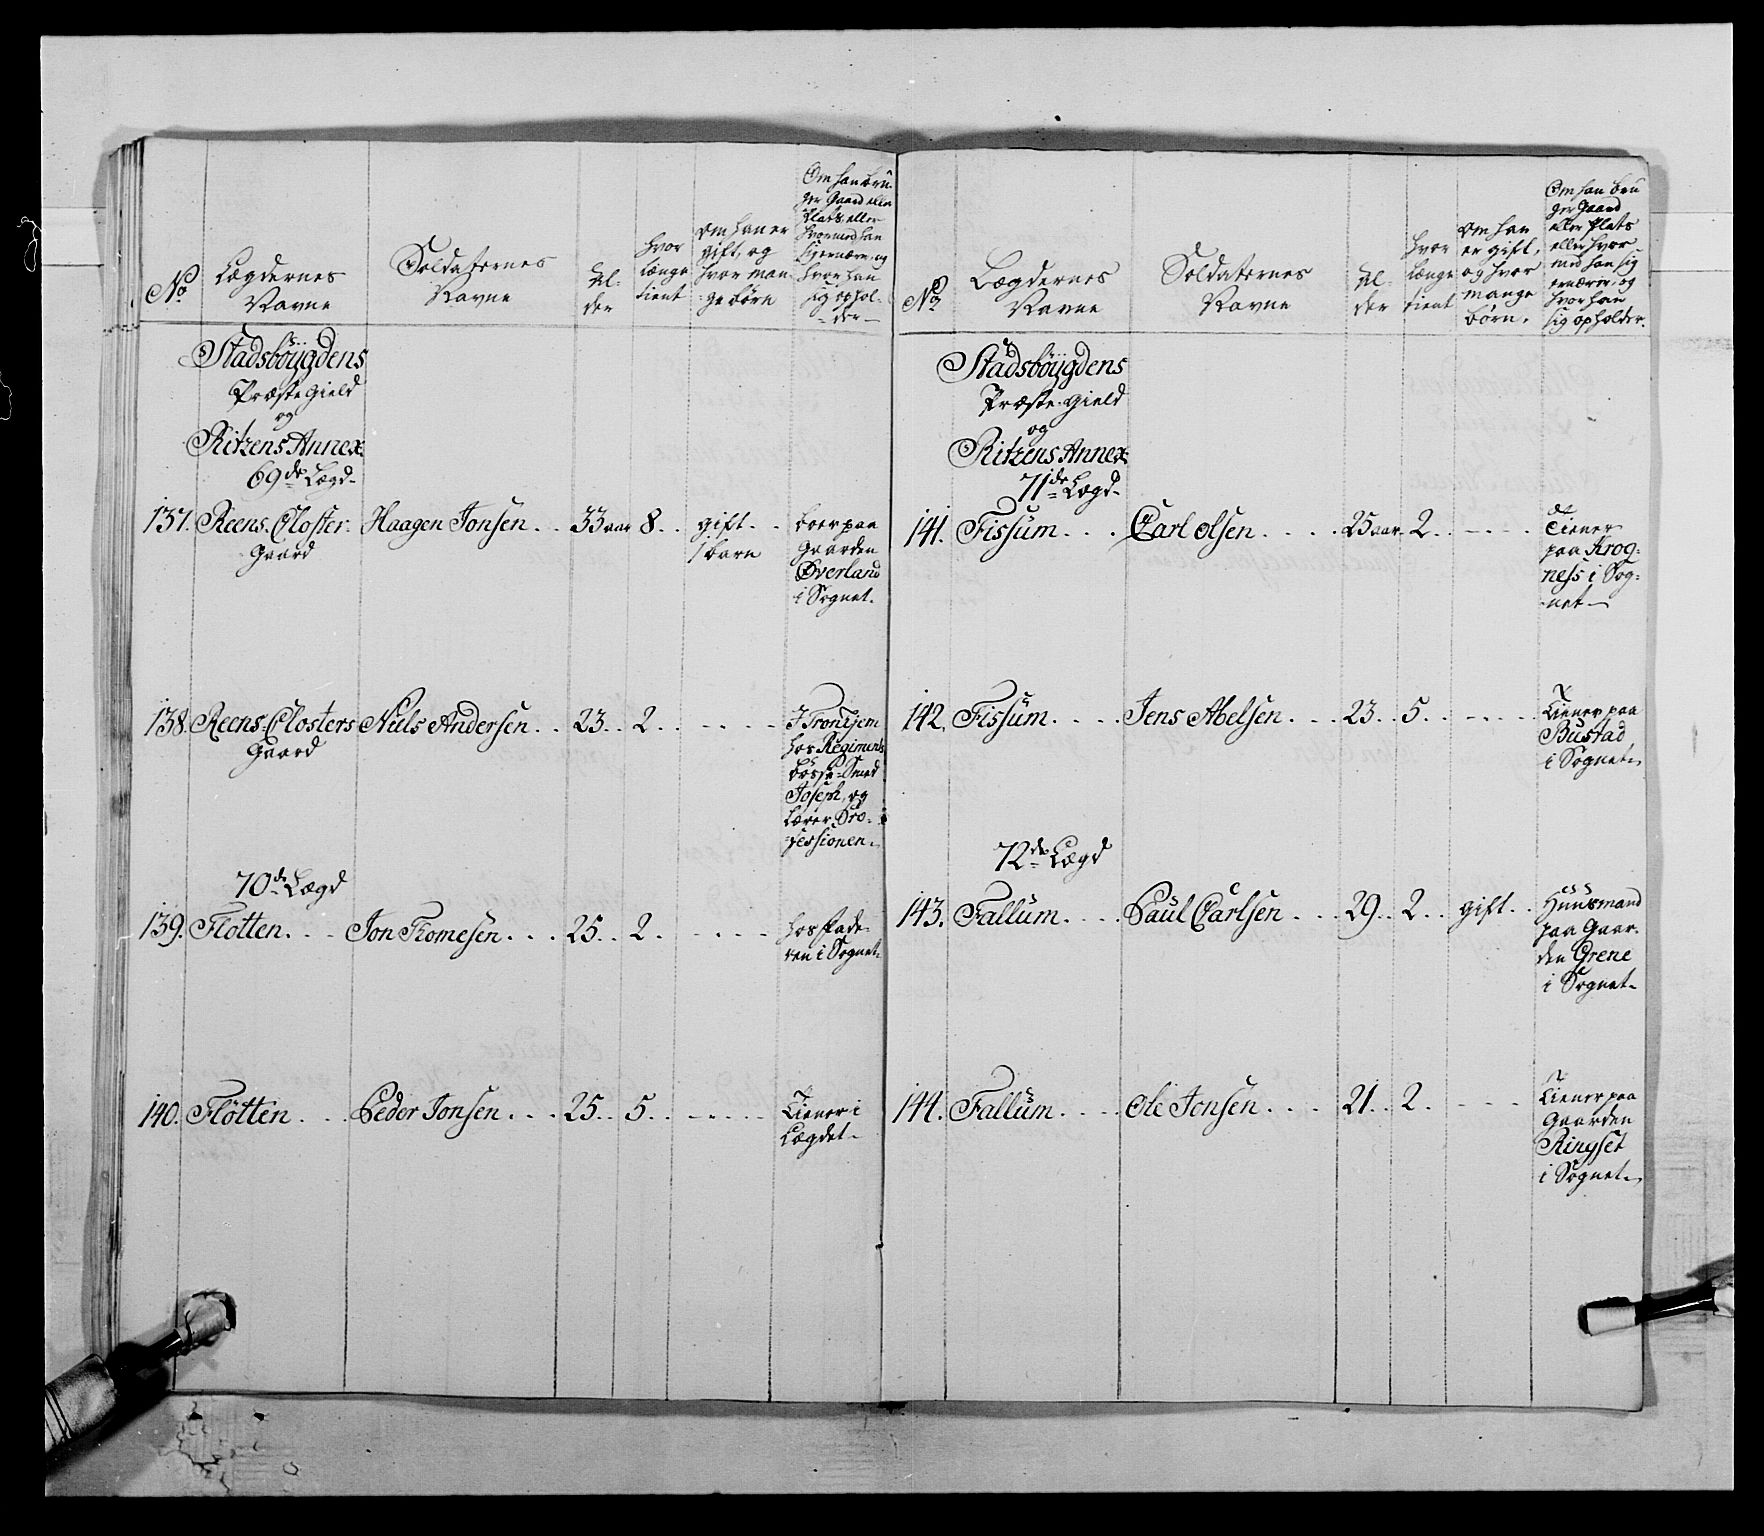 No
Lægdernes
Navne
Soldaternes
Navne
Al-
der
hvor
længe
tient
om han er
gift, og
hvor man-
ge børn
Om han bru-
ger Gaard eller
Plats eller
hvormed han
sig ernære, og
hvor han
sig ophol-
der
Stadsböÿgdens
Præste Gield
og
Ritzens Annex
69de Lægd
137. Reens Closter Haagen Jonsen . . 33 aar 8. . gift . . boer paa
Gaard 1 barn Gaarden
Overland
i Sognet.
138. Reens Closters Niels Andersen . . 23 . . 2 . . - - - - I Tronhjem
Gaard hos Regiments
bösse-Smed
Joseph, og
lærer Pro-
fessionen.
70de Lægd
139. Flötten . . . Jon Tomesen . . . 25 . . 2 . - - - - hos Fade-
ren i Sognet
140. Flötten . . . Peder Jonsen . . . 25 . . 5 . . - - - - Tiener i
Lægdet
No
Lægdernes
Navne
Soldaternes
Navne
Al-
der
hvor
længe
tient
om han
er gift,
og hvor
mange
börn.
Om han bru
ger Gaard
eller Plats
eller hvor
med han sig
ernærer, og
hvor han
sig opholder.
Stadsböÿgdens
Præste-Gield
og
Ritzens Annex
71de Lægd
141. Fissum . . . Carl Olsen . . . . 25 aar. 2 . . - - - - Tiener
paa Krog-
ness i Sog-
net
142. Fissum . . . . Jens Abelsen . . . 23 . . 5 . . - - - - Tiener paa
Bustad
i Sognet
72de Lægd
143. Fallum . . . . Paul Carlsen . . . 29 . . 2 . . gift . . Huusmand
paa Gaar-
den Grene
i Sognet
144. Fallum . . . . Ole Jonsen . . . . 21 . . 2 . - - - Tiener paa
Gaarden
Ringset
i Sognet